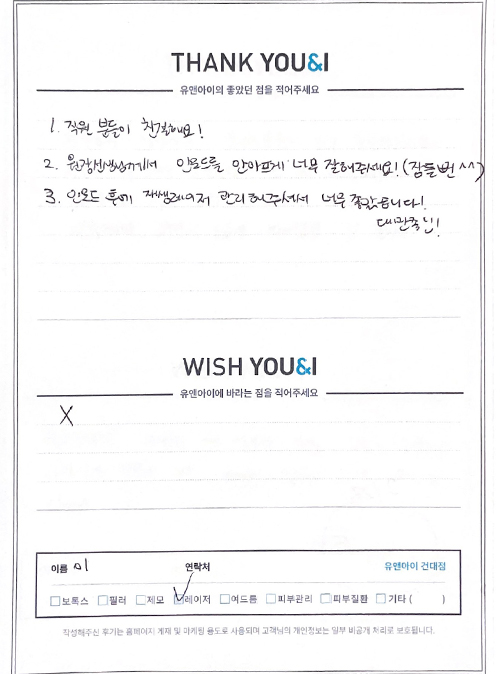 THANK YOU&I
유앤아이의 좋았던 점을 적어주세요
1. 직원 분들이 친절해요!
2. 원장선생님께서 인모드를 안아프게 너무 잘해주세요! (잠들뻔 ^^)
3. 인모드 후에 재생레이저 관리 해주셔서 너무 좋았습니다!
대만족입니!
WISH YOU&I
유앤아이에 바라는 점을 적어주세요
X
이름 이 연락처 유앤아이 건대점
보톡스 필러 제모 레이저 여드름 피부관리 피부질환 기타 ( )
작성해주신 후기는 홈페이지 게재 및 마케팅 용도로 사용되며 고객님의 개인정보는 일부 비공개 처리로 보호됩니다.